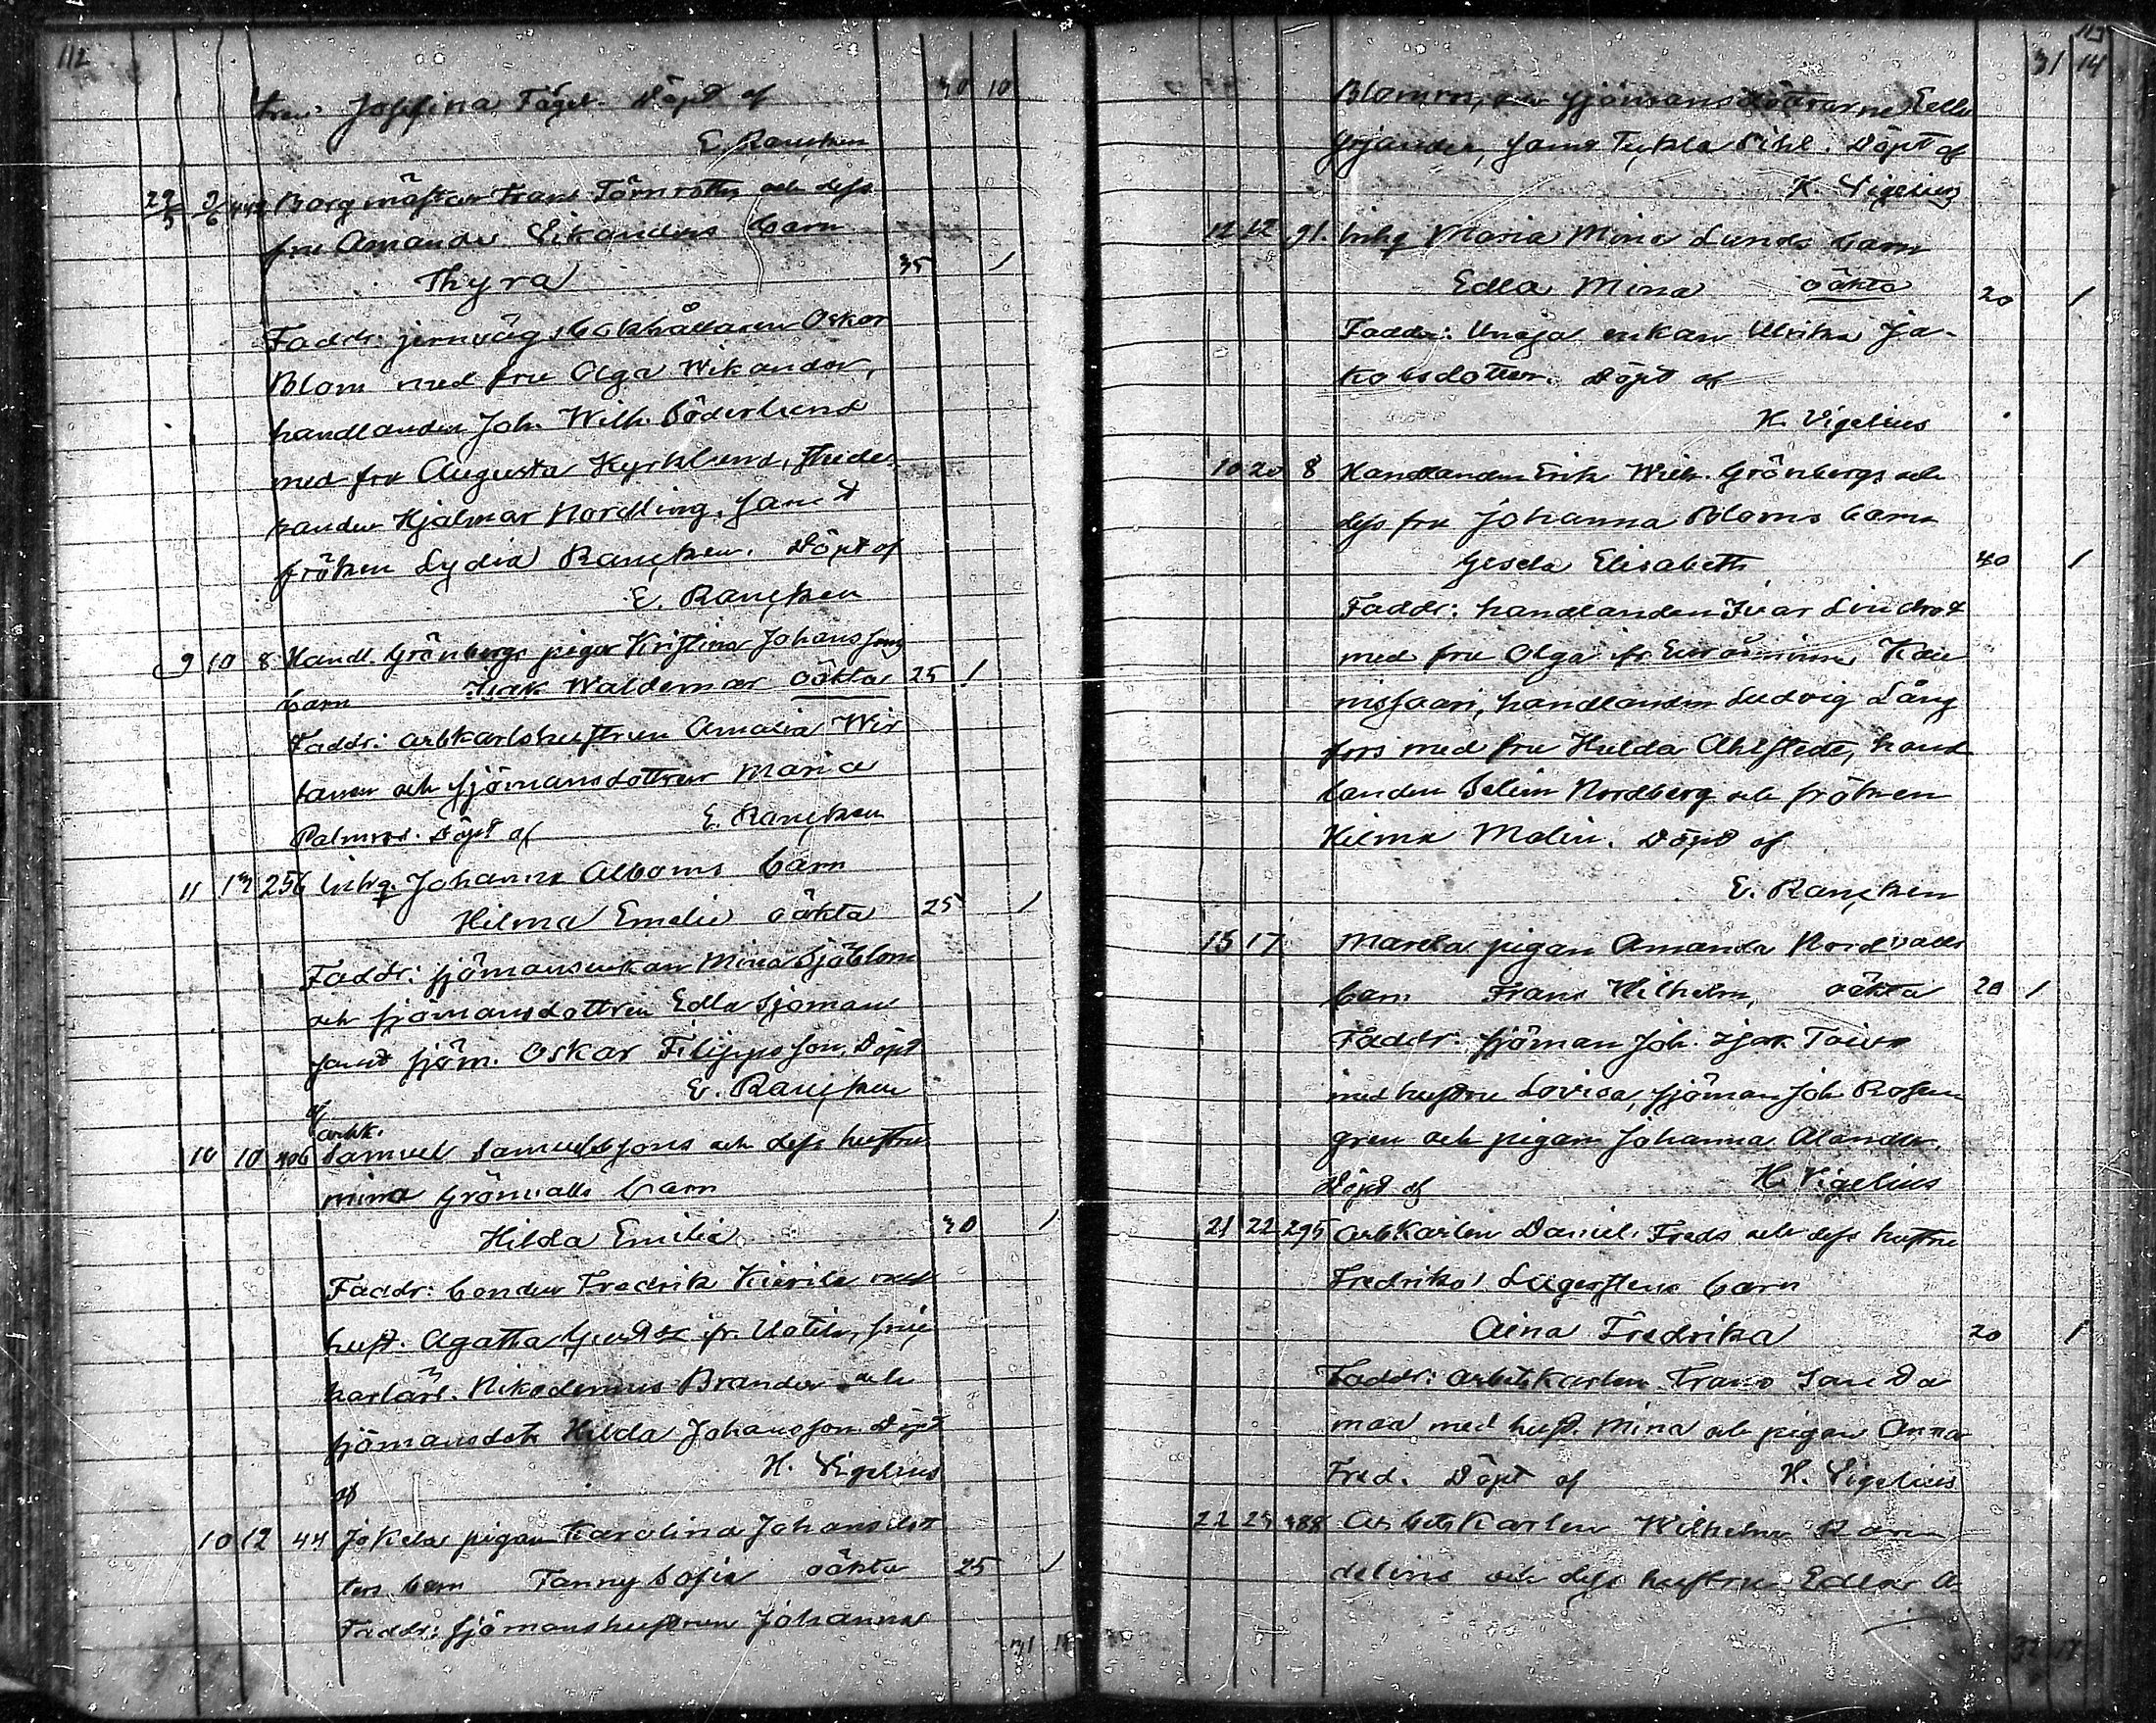 112
tren Josefina Fågel. Döpt af 30 10
E. Rancken
22/5 3/6 448 Borgmästar Frans Törnroths och dess
fru Amanda Vikanders barn
Thyra 35 1
Faddr: jernvägsbokhållaren Oskar
Blom med fru Olga Wikander,
handlanden Joh. Wilh. Söderlund
med fru Augusta Kyrklund, stude-
randen Hjalmar Nordling, samt
fröken Lydia Rancken. Döpt af
E. Rancken
9 10 8 Handl. Grönbergs pigas Kristina Johanssons
barn Isak Waldemar oäkta 25 1
Faddr: arbkarlshustrun Amalia Wir
tanen och sjömansdottren Maria
Palmros. Döpt af E. Rancken
11 13 256 inhq. Johanna Alboms barn
Hilma Emelie oäkta 25 1
Faddr: sjömansenkan Mina Sjöblom
och sjömansdottren Edla Sjöman
samt sjöm. Oskar Filippsson. Döpt
af E. Rancken
arbk.
10 10 406 Samuel Samuelssons och dess hustru
Mina Grönvalls barn
Hilda Emilia 30 1
Faddr: bonden Fredrik med
hust. Agatha fr.
karlärl. Nikodemus Brander och
sjömansdotr Hilda Johansson. Döpt
af H. Vigelius
10 12 44 Jokela pigan Karolina Johansdot
ters barn Fanny Sofia oäkta 25 1
Faddr: sjömanshustrun Johanna
31 11
113
31 14
Blomm, sjömansdöttrarne
samt Tekla Pihl. Döpt af
K. Vigelius
12 12 91. inhq Maria Mina Lunds barn
Edla Mina oäkta 20 1
Faddr: enkan Ulrika Ja-
kobsdotter. Döpt af
K. Vigelius
10 20 8 Handlanden Erik Wilh. Grönbergs och
dess fru Johanna Bloms barn
Gesela Elisabeth 40 1
Faddr: handlanden Ivar Lindrot
med fru Olga fr. Kau
nissaari, handlanden Ludvig Lång
fors med fru Hulda Ahlstedt, hand
landen Selim Nordberg och fröken
Hilma Malin. Döpt af
E. Rancken
15 17 Marela pigan Amanda Nordvalls
barn Frans Wilhelm, oäkta 20 1
Faddr: sjöman Joh. Isak
med hustru Lovisa, sjöman Joh Rosen
gren och pigan Johanna Alander.
Döpt af H. Vigelius
21 22 295 Arbkarlen Daniel Freds och dess hustru
Fredrika Lagerstens barn
Aina Fredrika 20 1
Faddr: arbetskarlen Frans
med hust. Mina och pigan Anna
Fred. Döpt af H. Vigelius
22 23 388 Arbetskarlen Wilhelm Ran
delins och dess hustru Edla A
32 17